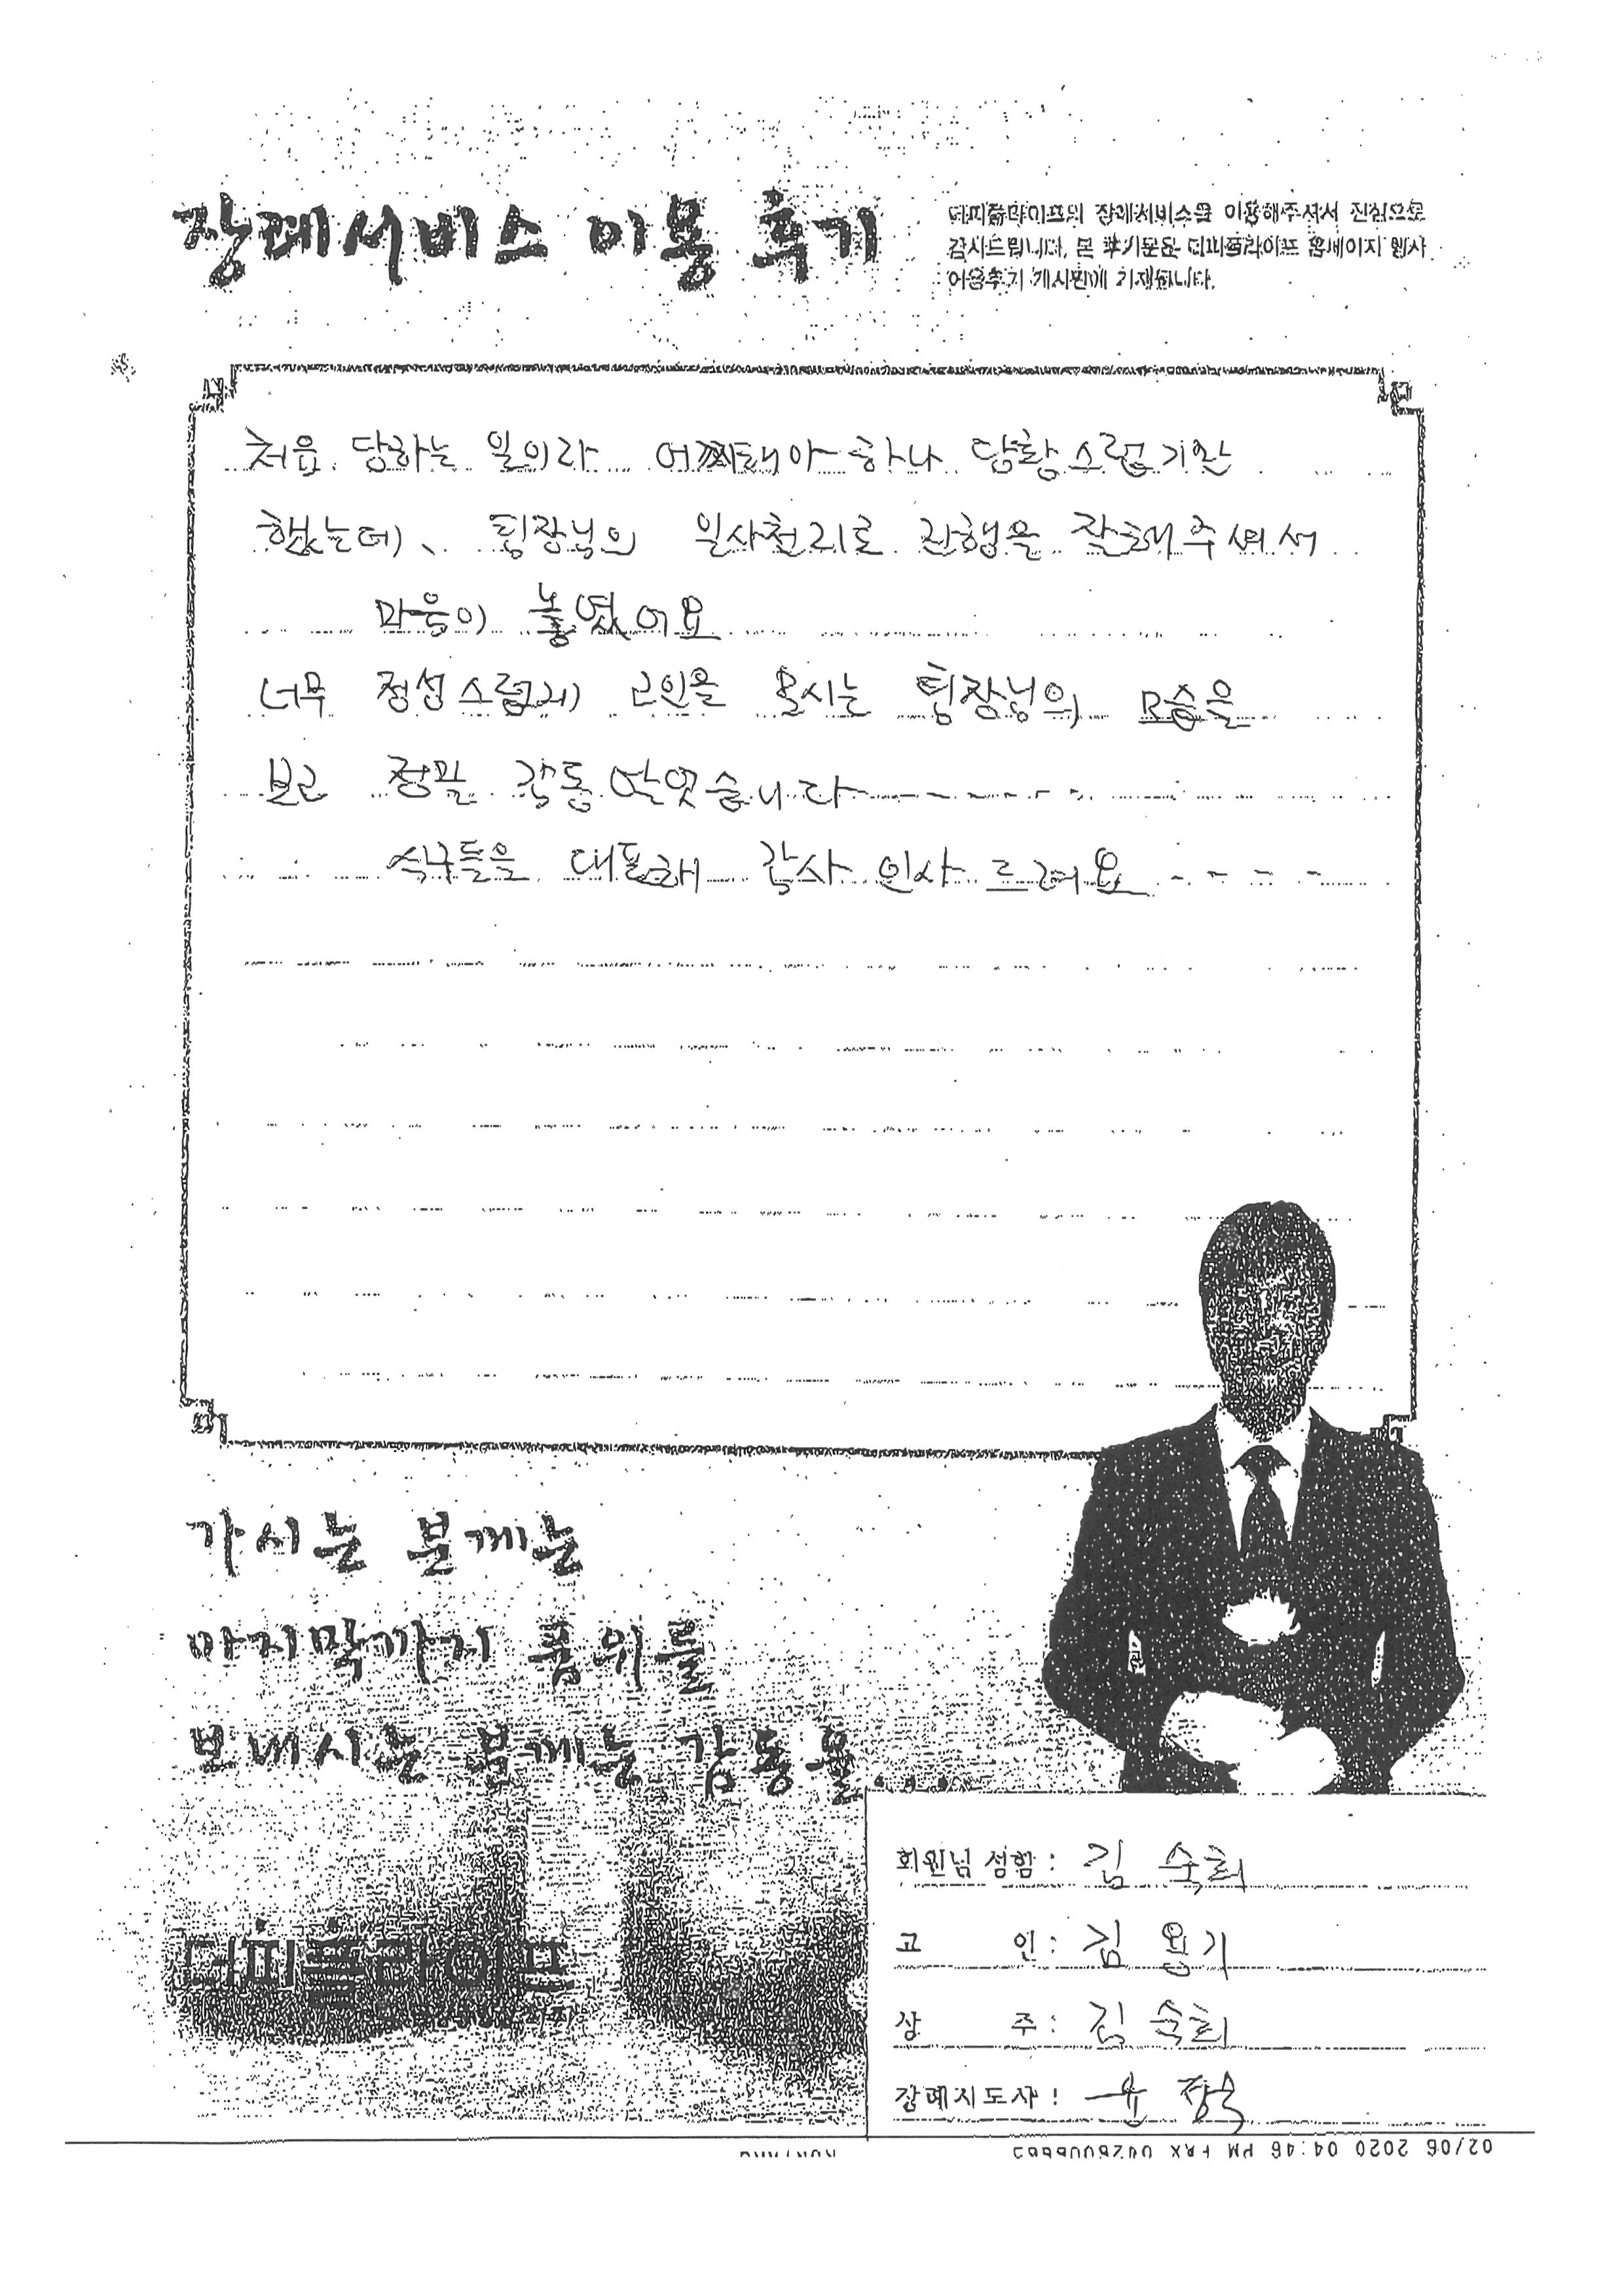 장례서비스 이용 후기
더피플라이프의 장례서비스를 이용해주셔서 진심으로
감사드립니다. 본 후기문은 더피플라이프 홈페이지 행사
이용후기 게시판에 기재됩니다.
처음 당하는 일이라 어찌해야 하나 당황스럽기만
했는데, 팀장님의 일사천리로 진행을 잘해주셔서
마음이 놓였어요
너무 정성스럽게 고인을 모시는 팀장님의 모습을
보고 정말 감동 받았습니다
식구들을 대표해 감사 인사 드려요
가시는 분께는
마지막까지 품위를
보내시는 분께는 감동을....
더피플라이프
회원님 성함 : 김 숙희
고 인 : 김 용기
상 주 : 김 숙희
장례지도사 : 윤
02/06 2020 04:46 PM FAX